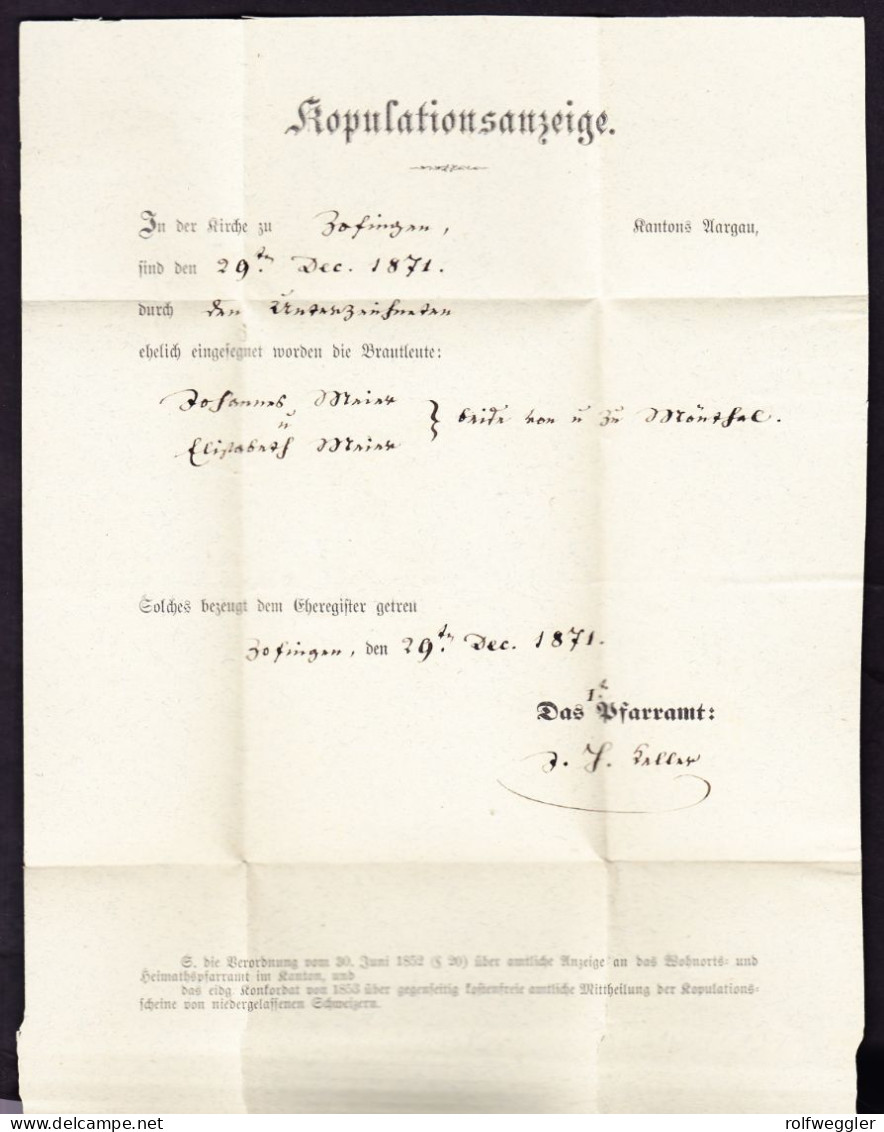 Kopulationsanzeige.
In der Kirche zu Zofingen, Kantons Aargau,
sind den 29ten Dec. 1871.
durch den Unterzeichneten
ehelich eingesegnet worden die Brautleute:
Johannes Meier
u } beide von u zu Mönthal.
Elisabeth Meier
Solches bezeugt dem Eheregister getreu
Zofingen, den 29ten Dec. 1871.
Das I. Pfarramt:
J. H. Keller
S. die Verordnung vom 30. Juni 1852 (§ 20) über amtliche Anzeige an das Wohnorts- und
Heimathspfarramt im Kanton, und
das eidg. Konkordat von 1853 über gegenseitig kostenfreie amtliche Mittheilung der Kopulations-
scheine von niedergelassenen Schweizern.
delcampe.net
rolfweggler